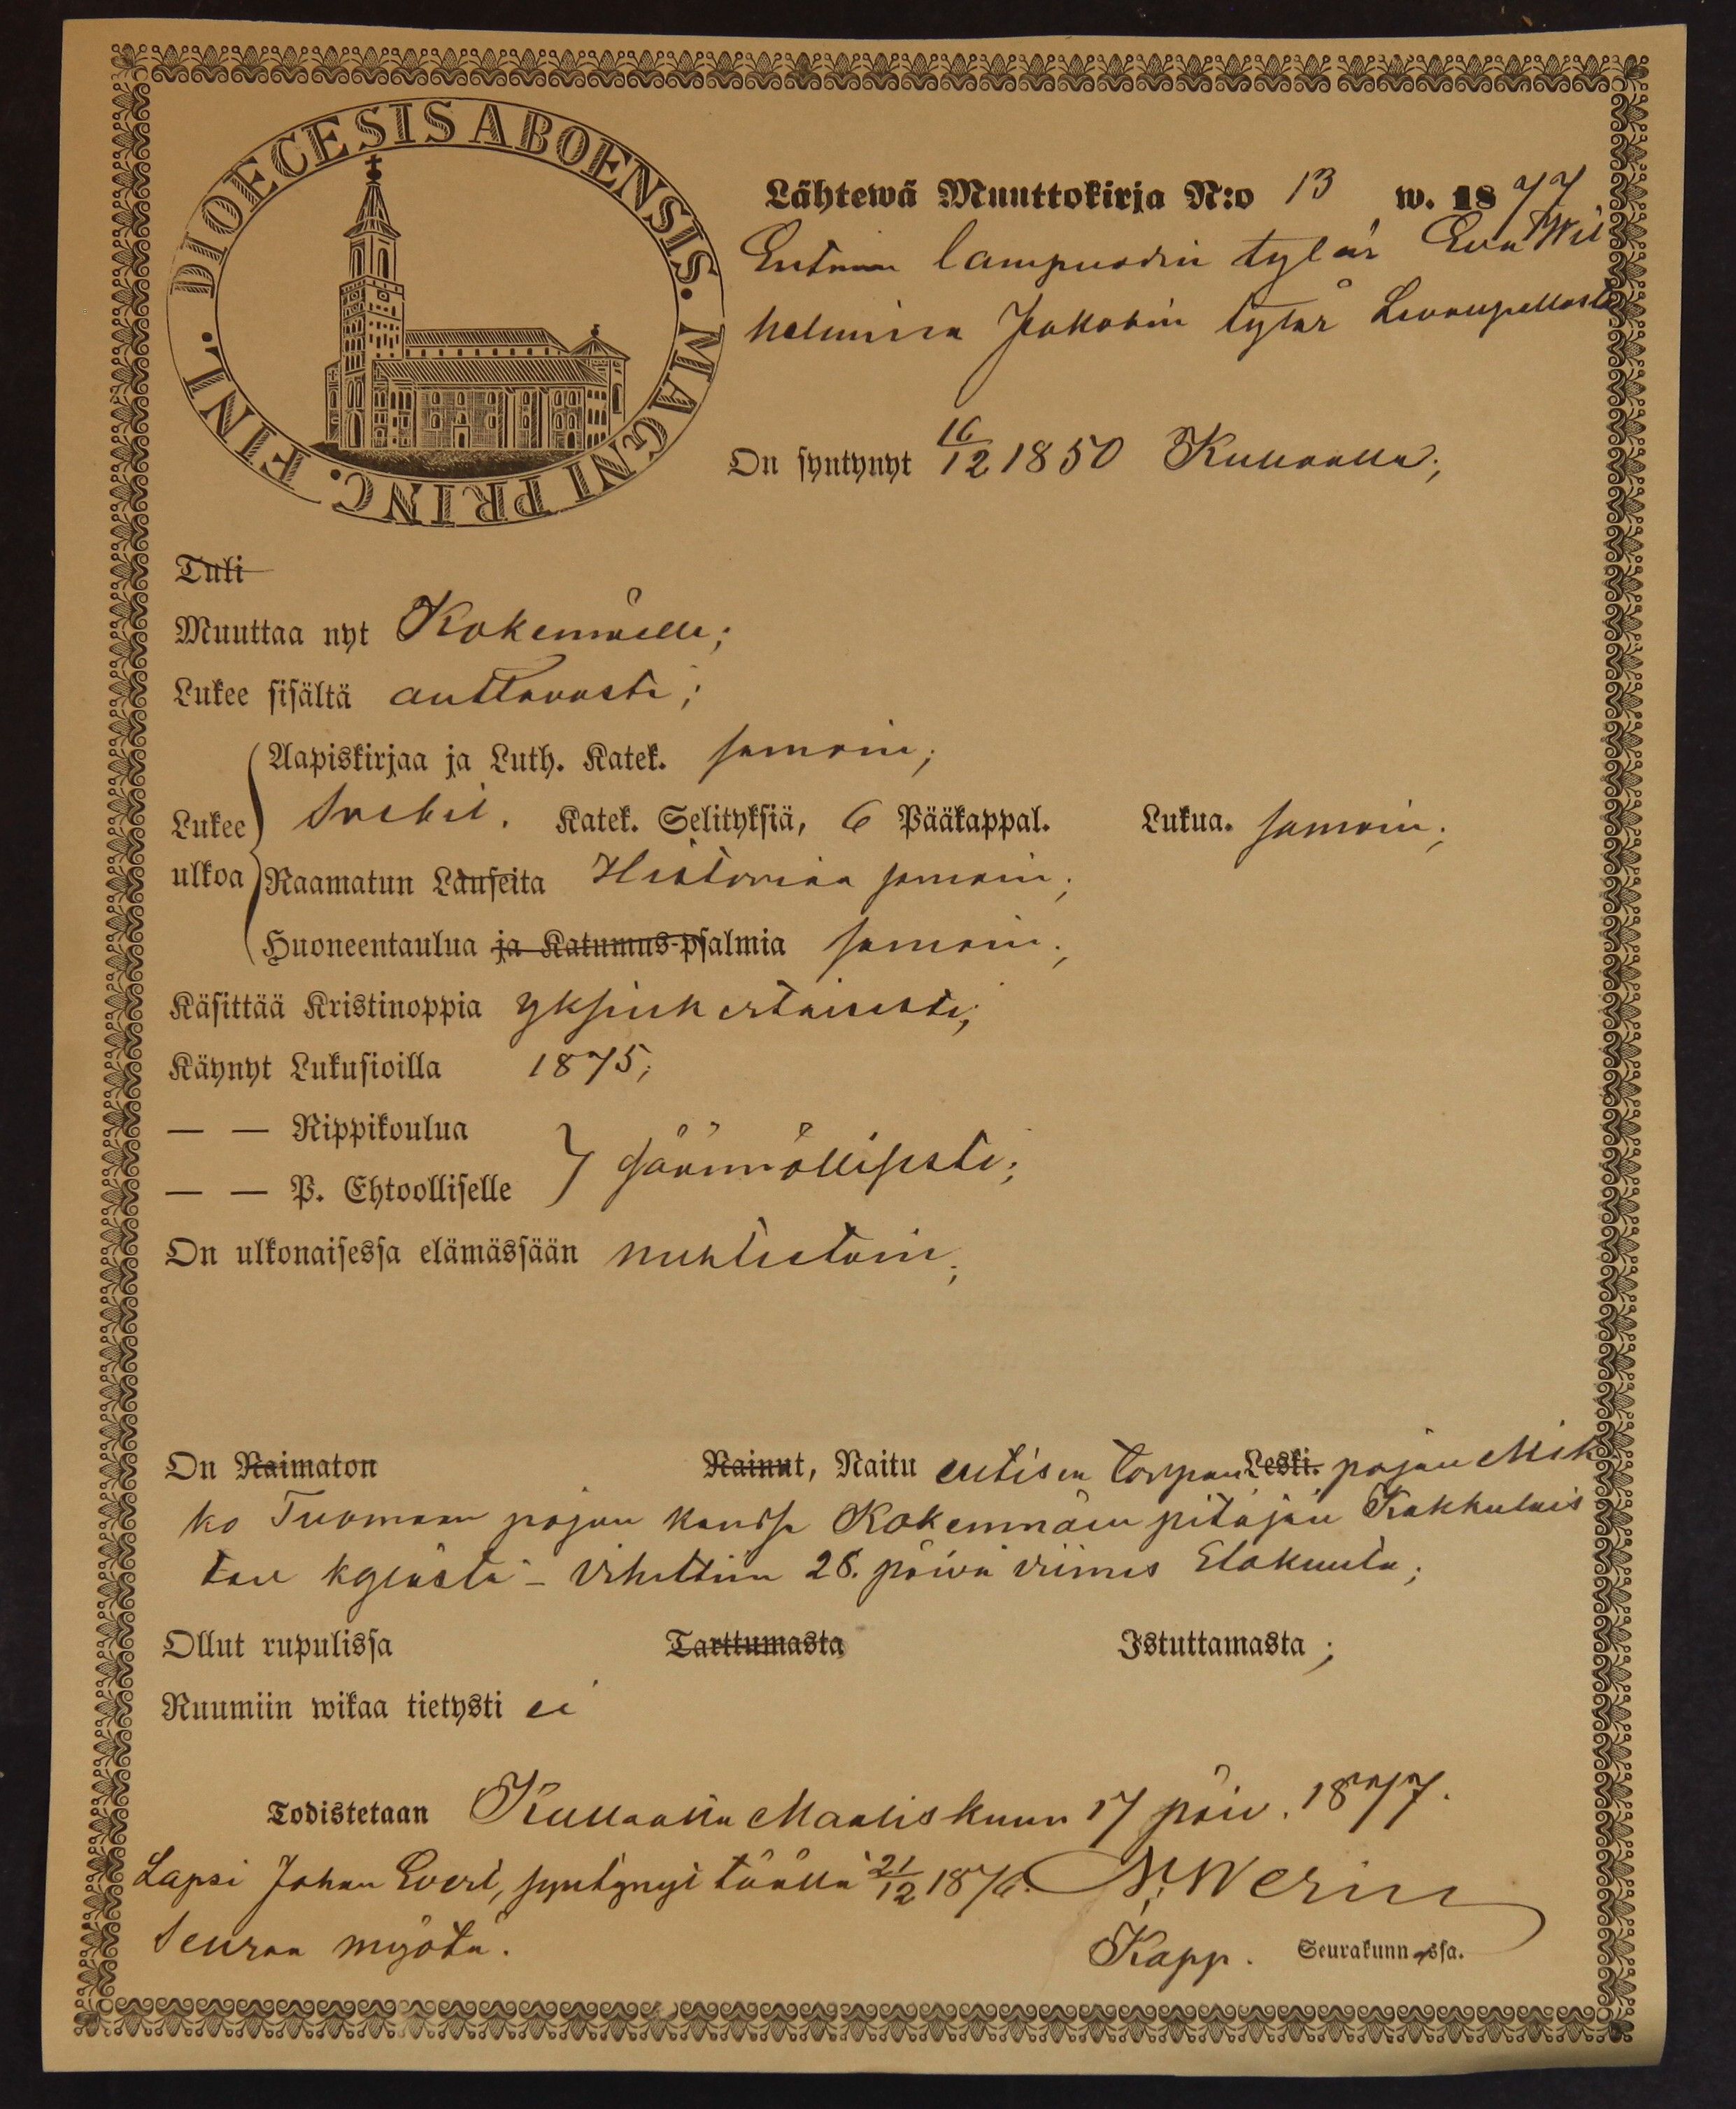 DIOECESIS ABOENSIS. MAGNI PRINC. FINL.
Lähtewä Muuttokirja N:o 13 w. 1877
lampuodin tytär Eva Wil
helmina Jakobin tytär Levanpellosta
On syntynyt 16/12 1850 Kullaalla;
Tuli
Muuttaa nyt Kokemäelle;
Lukee sisältä auttavasti;
Aapiskirjaa ja Luth. Katek. samoin;
Lukee Svebil. Katek. Selityksiä, 6 Pääkappal. Lukua. samoin;
ulkoa Raamatun Lauseita Historiaa samoin;
Huoneentaulua ja Katumus-psalmia samoin;
Käsittää Kristinoppia yksinkertaisesti;
Käynyt Lukusioilla 1875;
— — Rippikoulua
— — P. Ehtoolliselle } säännöllisesti;
On ulkonaisessa elämässään nuhteetoin;
On Naimaton Nainut, Naitu entisen torpan Leski. pojan Mik
ko Tuomaan pojan kanssa Kokemmäen pitäjän Kakkulais
ten kylästä – vihittiin 28. päivä viimes Elokuuta;
Ollut rupulissa Tarttumasta Istuttamasta;
Ruumiin wikaa tietysti ei
Todistetaan Kullaalla Maaliskuun 17 päiv. 1877.
Lapsi Johan Evert, syntynyt täällä 21/12 1876. Werin
seuraa myötä.
Kapp. Seurakunnassa.